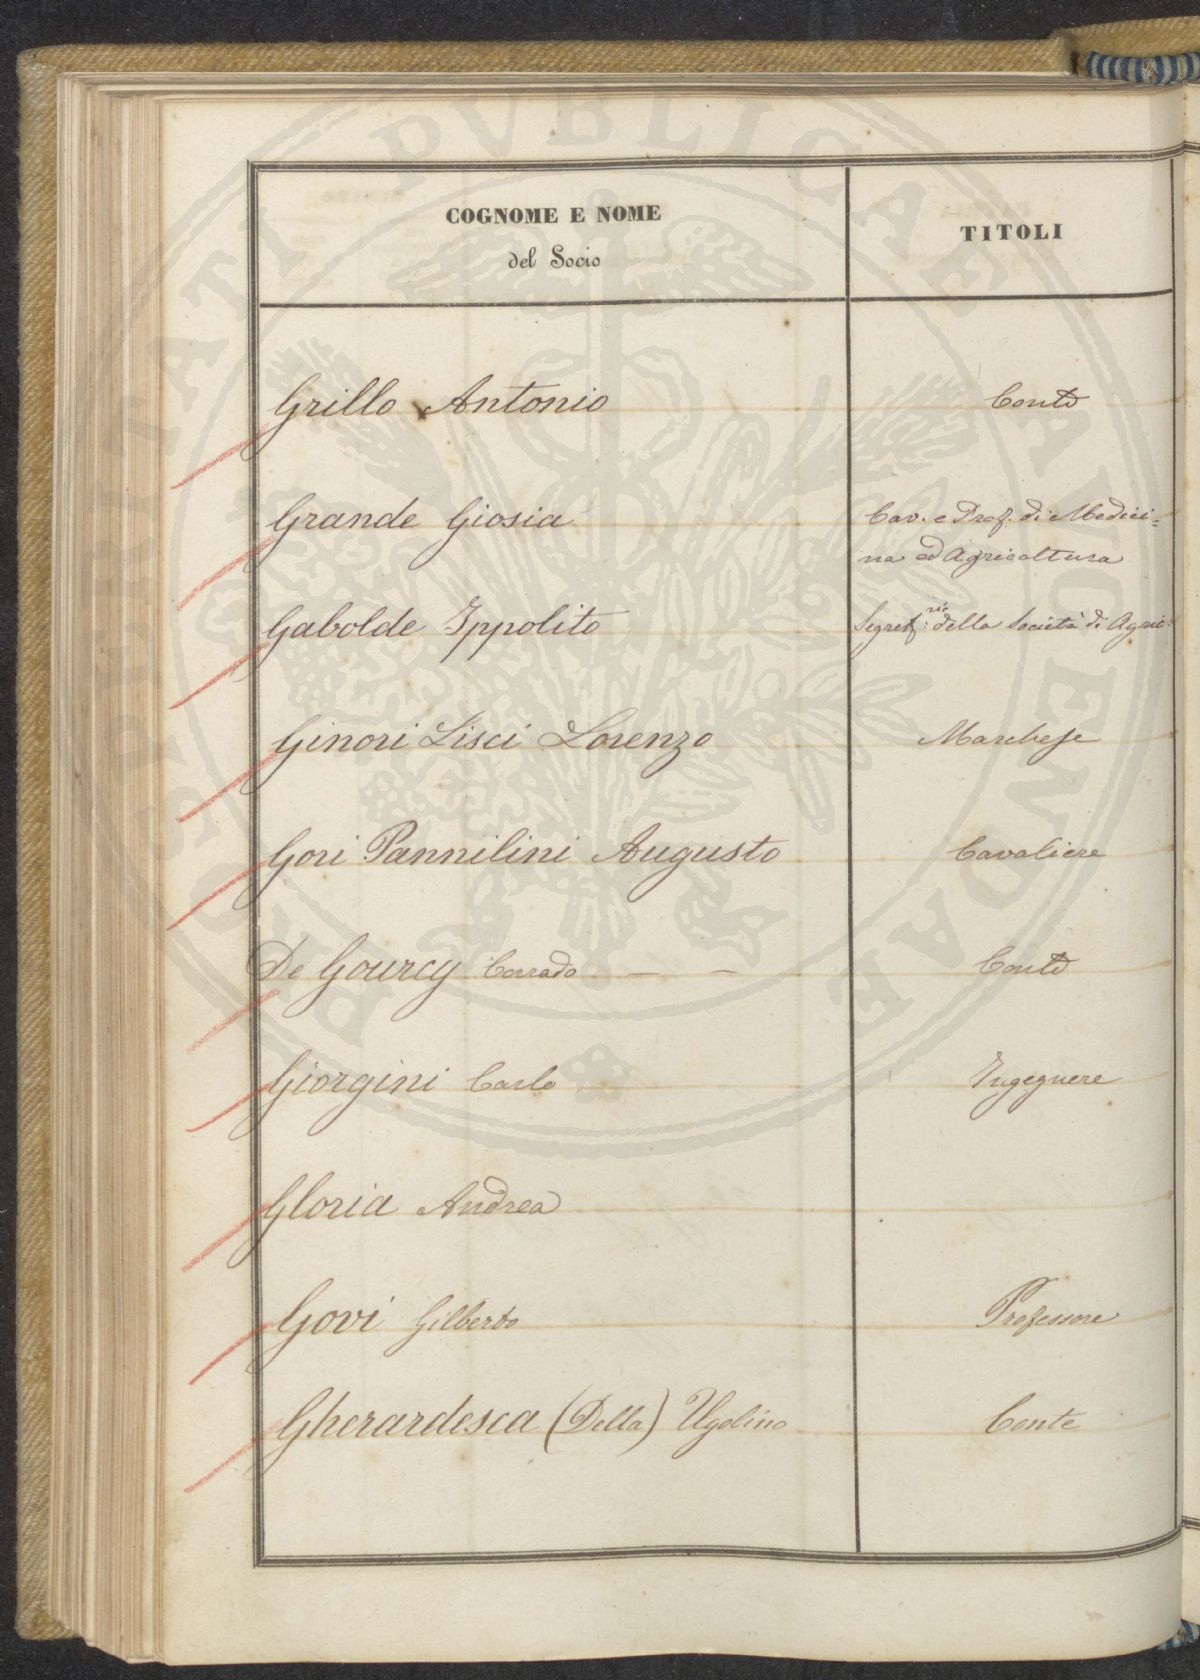 COGNOME E NOME
del Socio
TITOLI
Grillo Antonio
Conte
Grande Giosia
Cav. e Prof. di Medici=
na ed Agricoltura
Gabolde Ippolito
Segret.rio della Società di Agric.
Ginori Lisci Lorenzo
Marchese
Gori Pannilini Augusto
Cavaliere
De Gourcy Corrado — —
Conte
Giorgini Carlo
Ingegnere
Gloria Andrea
Govi Gilberto
Professore
Gherardesca (Della) Ugolino
Conte
PROSPERITATI PVBLICAE AVGENDAE